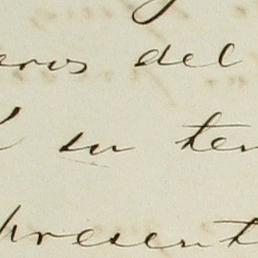 eros del
su ten
present